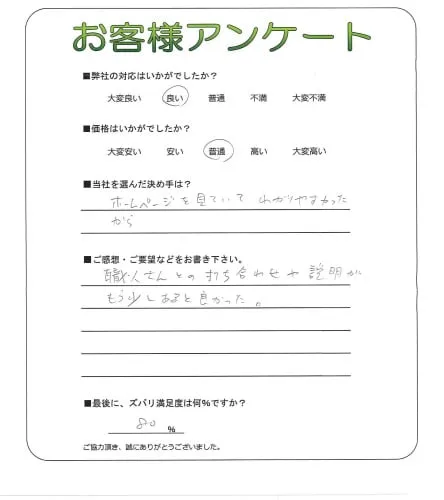 お客様アンケート
■弊社の対応はいかがでしたか？
大変良い 良い 普通 不満 大変不満
■価格はいかがでしたか？
大変安い 安い 普通 高い 大変高い
■当社を選んだ決め手は？
ホームページを見ていて わかりやすかった
から
■ご感想・ご要望などをお書き下さい。
職人さんとの打ち合わせや説明が
もう少しあると良かった。
■最後に、ズバリ満足度は何%ですか？
80 %
ご協力頂き、誠にありがとうございました。